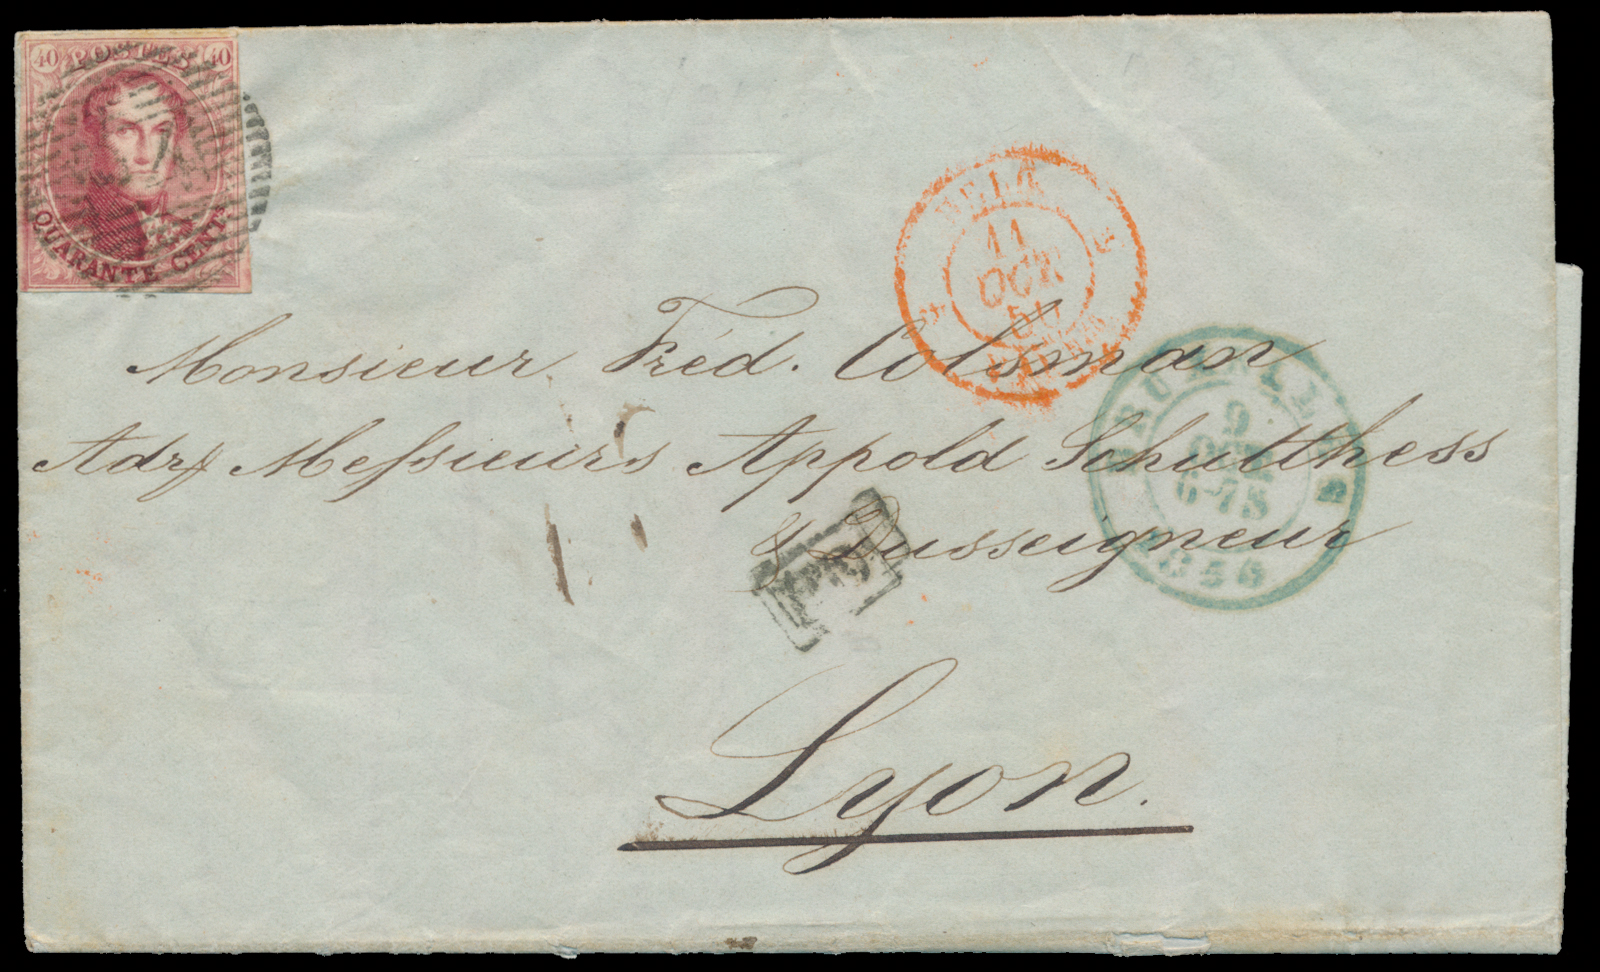 40 POSTES 40
QUARANTE CENTS
BELG.
11
OCT.
BRUXELLES
9
OCT.
6-7S
1856
Monsieur Fréd. Colsman
Adrs Messieurs Appold Schulthess
& Dusseigneur
Lyon.